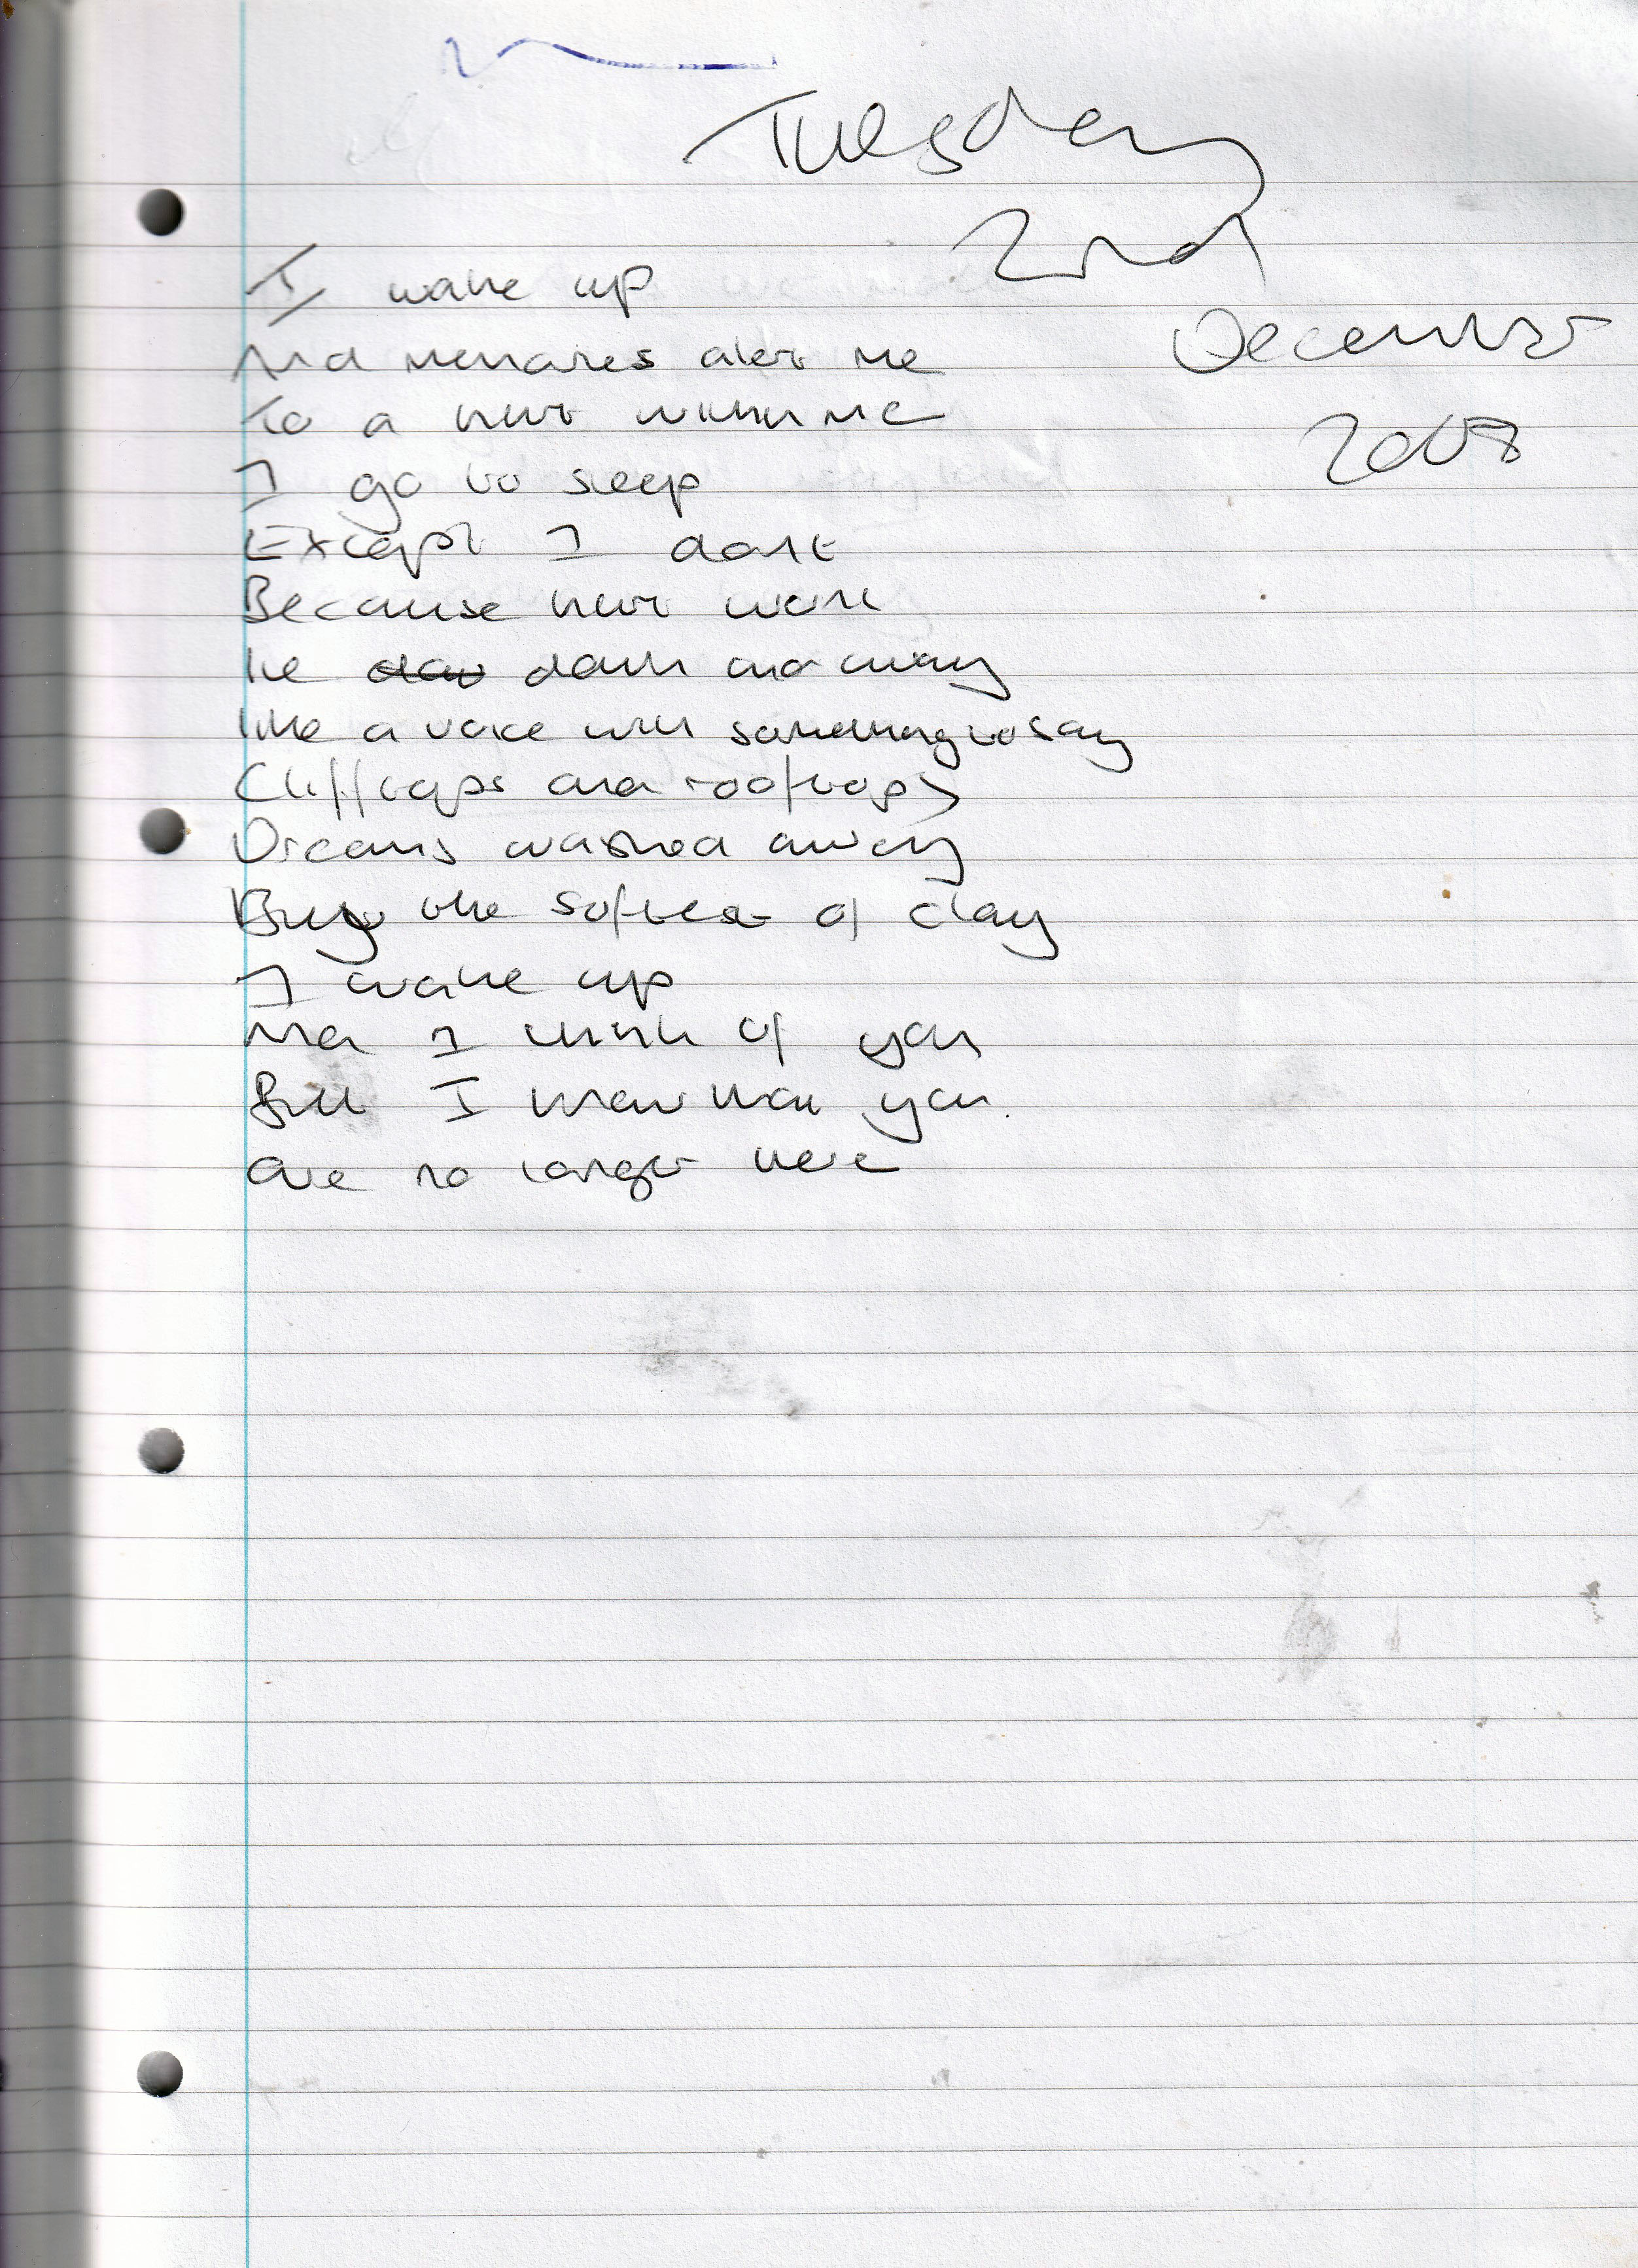 Tuesday
2nd
December
2008
I wake up
And memories alert me
To a hurt within me
I go to sleep
Except I don't
Because hurt won't
lie down and away
like a voice with something to say
Clifftops and rooftops
Dreams washed away
By the softest of clay
I wake up
And I think of you
But I know that you
are no longer here